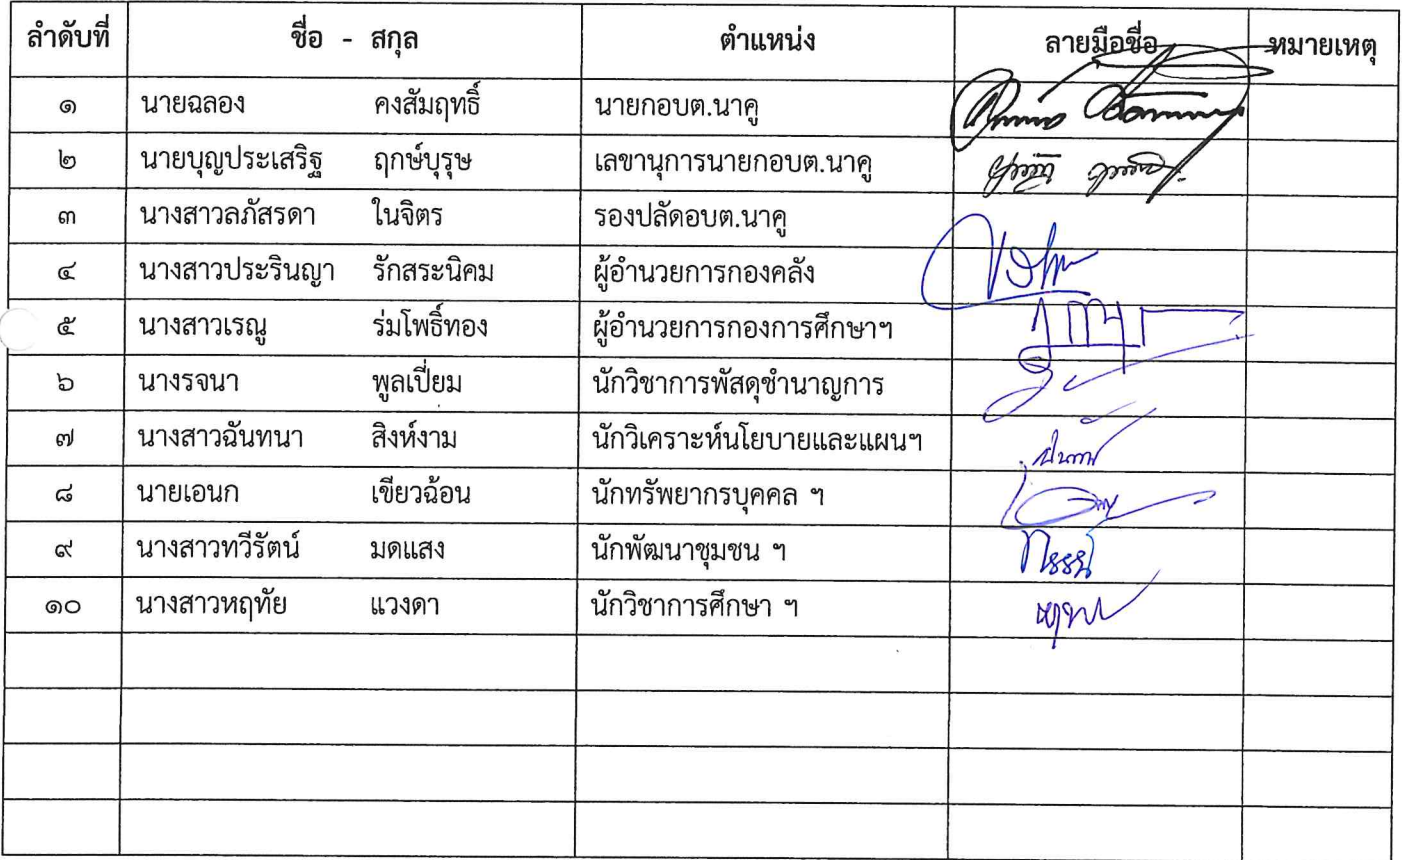 ลำดับที่ ชื่อ - สกุล ตำแหน่ง ลายมือชื่อ หมายเหตุ
๑ นายฉลอง คงสัมฤทธิ์ นายกอบต.นาคู
๒ นายบุญประเสริฐ ฤกษ์บุรุษ เลขานุการนายกอบต.นาคู
๓ นางสาวลภัสรดา ในจิตร รองปลัดอบต.นาคู
๔ นางสาวประรินญา รักสระนิคม ผู้อำนวยการกองคลัง
๕ นางสาวเรณู ร่มโพธิ์ทอง ผู้อำนวยการกองการศึกษาฯ
๖ นางรจนา พูลเปี่ยม นักวิชาการพัสดุชำนาญการ
๗ นางสาวฉันทนา สิงห์งาม นักวิเคราะห์นโยบายและแผนฯ
๘ นายเอนก เขียวฉ้อน นักทรัพยากรบุคคล ฯ
๙ นางสาวทวีรัตน์ มดแสง นักพัฒนาชุมชน ฯ
๑๐ นางสาวหฤทัย แวงดา นักวิชาการศึกษา ฯ